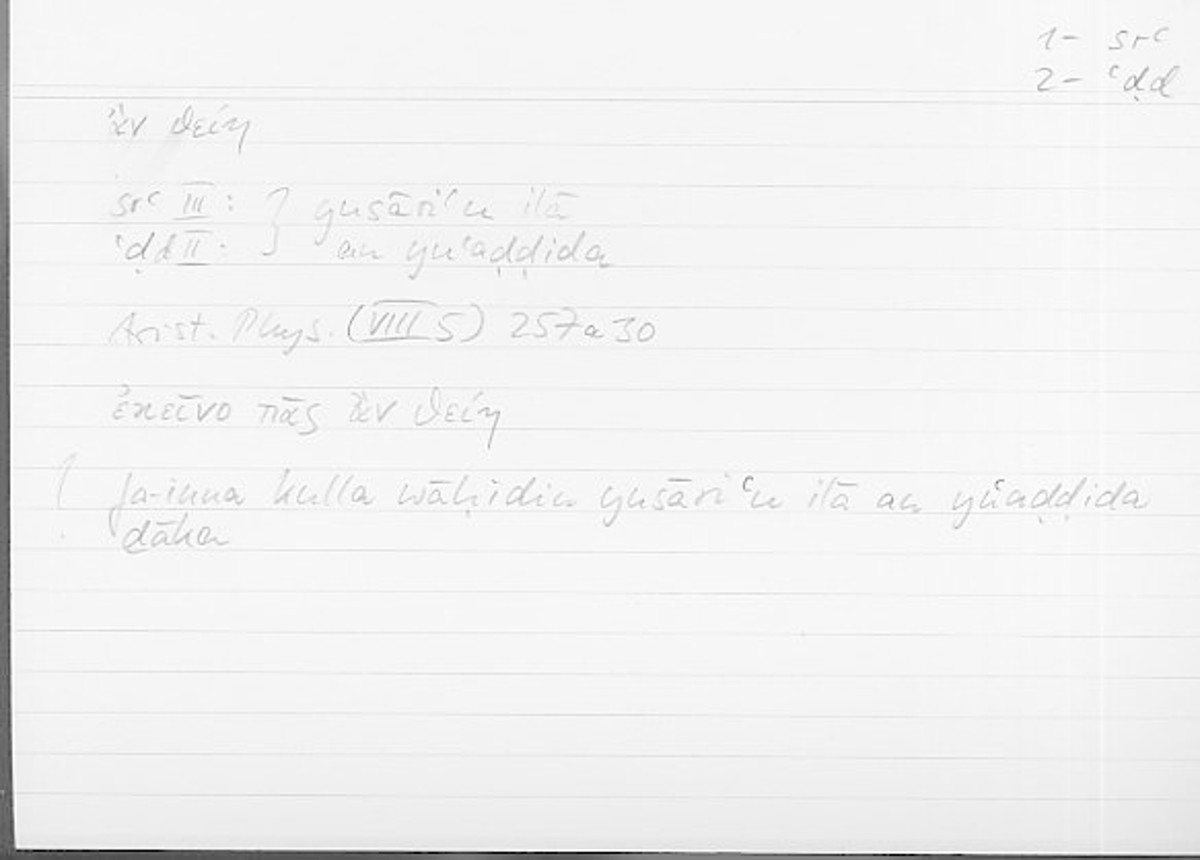 1– srʿ
2– ʿḍd
ἂν θείη
srʿ III: } yusāriʿu ilā
ʿḍd II: } an yuʿaḍḍida
Arist. Phys. (VIII 5) 257a30
ἐκεῖνο πᾶς ἂν θείη
! fa-inna kulla wāḥidin yusāriʿu ilā an yuʿaḍḍida
ḏāka